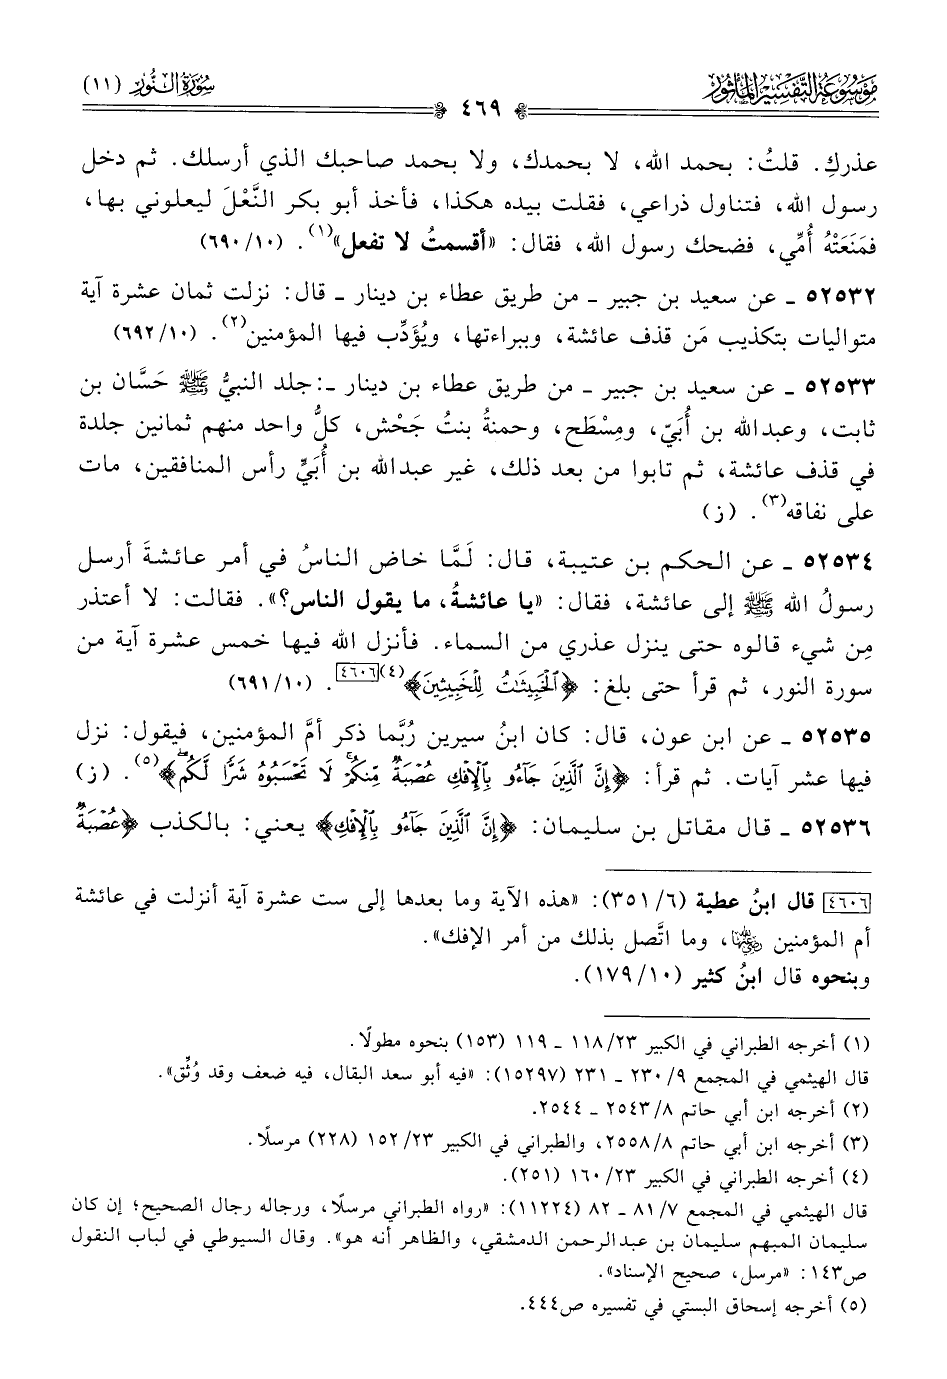 مَوْسُوعَة التَّفْسِير المَأْثُور
سُورَةُ النُّورِ (١١)
٤٦٩
عذركِ. قلتُ: بحمد الله، لا بحمدك، ولا بحمد صاحبك الذي أرسلك. ثم دخل
رسول الله، فتناول ذراعي، فقلت بيده هكذا، فأخذ أبو بكر النَّعْلَ ليعلوني بها،
فمَنَعَتْهُ أُمِّي، فضحك رسول الله، فقال: «أقسمتُ لا تفعل»(١). (١٠/ ٦٩٠)
٥٢٥٣٢ ـ عن سعيد بن جبير ـ من طريق عطاء بن دينار ـ قال: نزلت ثمان عشرة آية
متواليات بتكذيب مَن قذف عائشة، وببراءتها، ويُؤَدِّب فيها المؤمنين(٢). (١٠/ ٦٩٢)
٥٢٥٣٣ ـ عن سعيد بن جبير ـ من طريق عطاء بن دينار ـ: جلد النبيُّ ﷺ حَسَّان بن
ثابت، وعبد الله بن أُبَيّ، ومِسْطَح، وحمنةُ بنتُ جَحْش، كلُّ واحد منهم ثمانين جلدة
في قذف عائشة، ثم تابوا من بعد ذلك، غير عبد الله بن أُبَيٍّ رأس المنافقين، مات
على نفاقه(٣). (ز)
٥٢٥٣٤ ـ عن الحكم بن عتيبة، قال: لَمَّا خاض الناسُ في أمر عائشةَ أرسل
رسولُ الله ﷺ إلى عائشة، فقال: «يا عائشةُ، ما يقول الناس؟». فقالت: لا أعتذر
مِن شيء قالوه حتى ينزل عذري من السماء. فأنزل الله فيها خمس عشرة آية من
سورة النور، ثم قرأ حتى بلغ: ﴿ٱلۡخَبِيثَٰتُ لِلۡخَبِيثِينَ﴾(٤)[٤٦٠٦]. (١٠/ ٦٩١)
٥٢٥٣٥ ـ عن ابن عون، قال: كان ابنُ سيرين رُبَّما ذكر أمَّ المؤمنين، فيقول: نزل
فيها عشر آيات. ثم قرأ: ﴿إِنَّ ٱلَّذِينَ جَآءُو بِٱلۡإِفۡكِ عُصۡبَةٞ مِّنكُمۡۚ لَا تَحۡسَبُوهُ شَرّٗا لَّكُمۖ﴾(٥). (ز)
٥٢٥٣٦ ـ قال مقاتل بن سليمان: ﴿إِنَّ ٱلَّذِينَ جَآءُو بِٱلۡإِفۡكِ﴾ يعني: بالكذب ﴿عُصۡبَةٞ
[٤٦٠٦] قال ابنُ عطية (٦/ ٣٥١): «هذه الآية وما بعدها إلى ست عشرة آية أنزلت في عائشة
أم المؤمنين رضي الله عنها، وما اتَّصل بذلك من أمر الإفك».
وبنحوه قال ابنُ كثير (١٠/ ١٧٩).
(١) أخرجه الطبراني في الكبير ٢٣/ ١١٨ ـ ١١٩ (١٥٣) بنحوه مطولًا.
قال الهيثمي في المجمع ٩/ ٢٣٠ ـ ٢٣١ (١٥٢٩٧): «فيه أبو سعد البقال، فيه ضعف وقد وُثِّق».
(٢) أخرجه ابن أبي حاتم ٨/ ٢٥٤٣ ـ ٢٥٤٤.
(٣) أخرجه ابن أبي حاتم ٨/ ٢٥٥٨، والطبراني في الكبير ٢٣/ ١٥٢ (٢٢٨) مرسلًا.
(٤) أخرجه الطبراني في الكبير ٢٣/ ١٦٠ (٢٥١).
قال الهيثمي في المجمع ٧/ ٨١ ـ ٨٢ (١١٢٢٤): «رواه الطبراني مرسلًا، ورجاله رجال الصحيح؛ إن كان
سليمان المبهم سليمان بن عبد الرحمن الدمشقي، والظاهر أنه هو». وقال السيوطي في لباب النقول
ص١٤٣: «مرسل، صحيح الإسناد».
(٥) أخرجه إسحاق البستي في تفسيره ص٤٤٤.